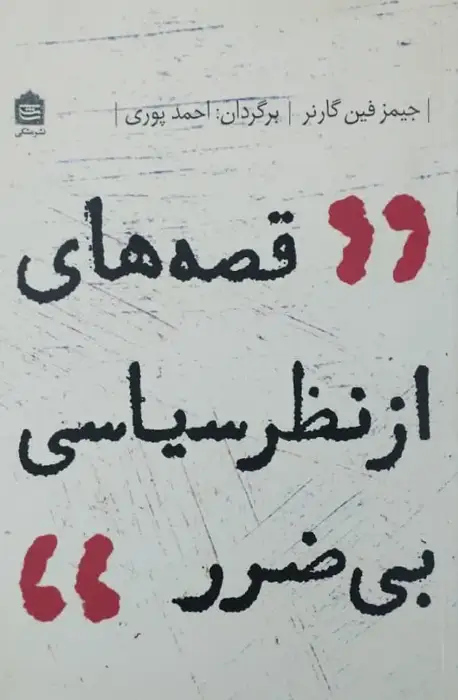 | جیمز فین گارنر | برگردان: احمد پوری |
نشر مشکی
" قصه‌های
از نظر سیاسی
بی ضرر "